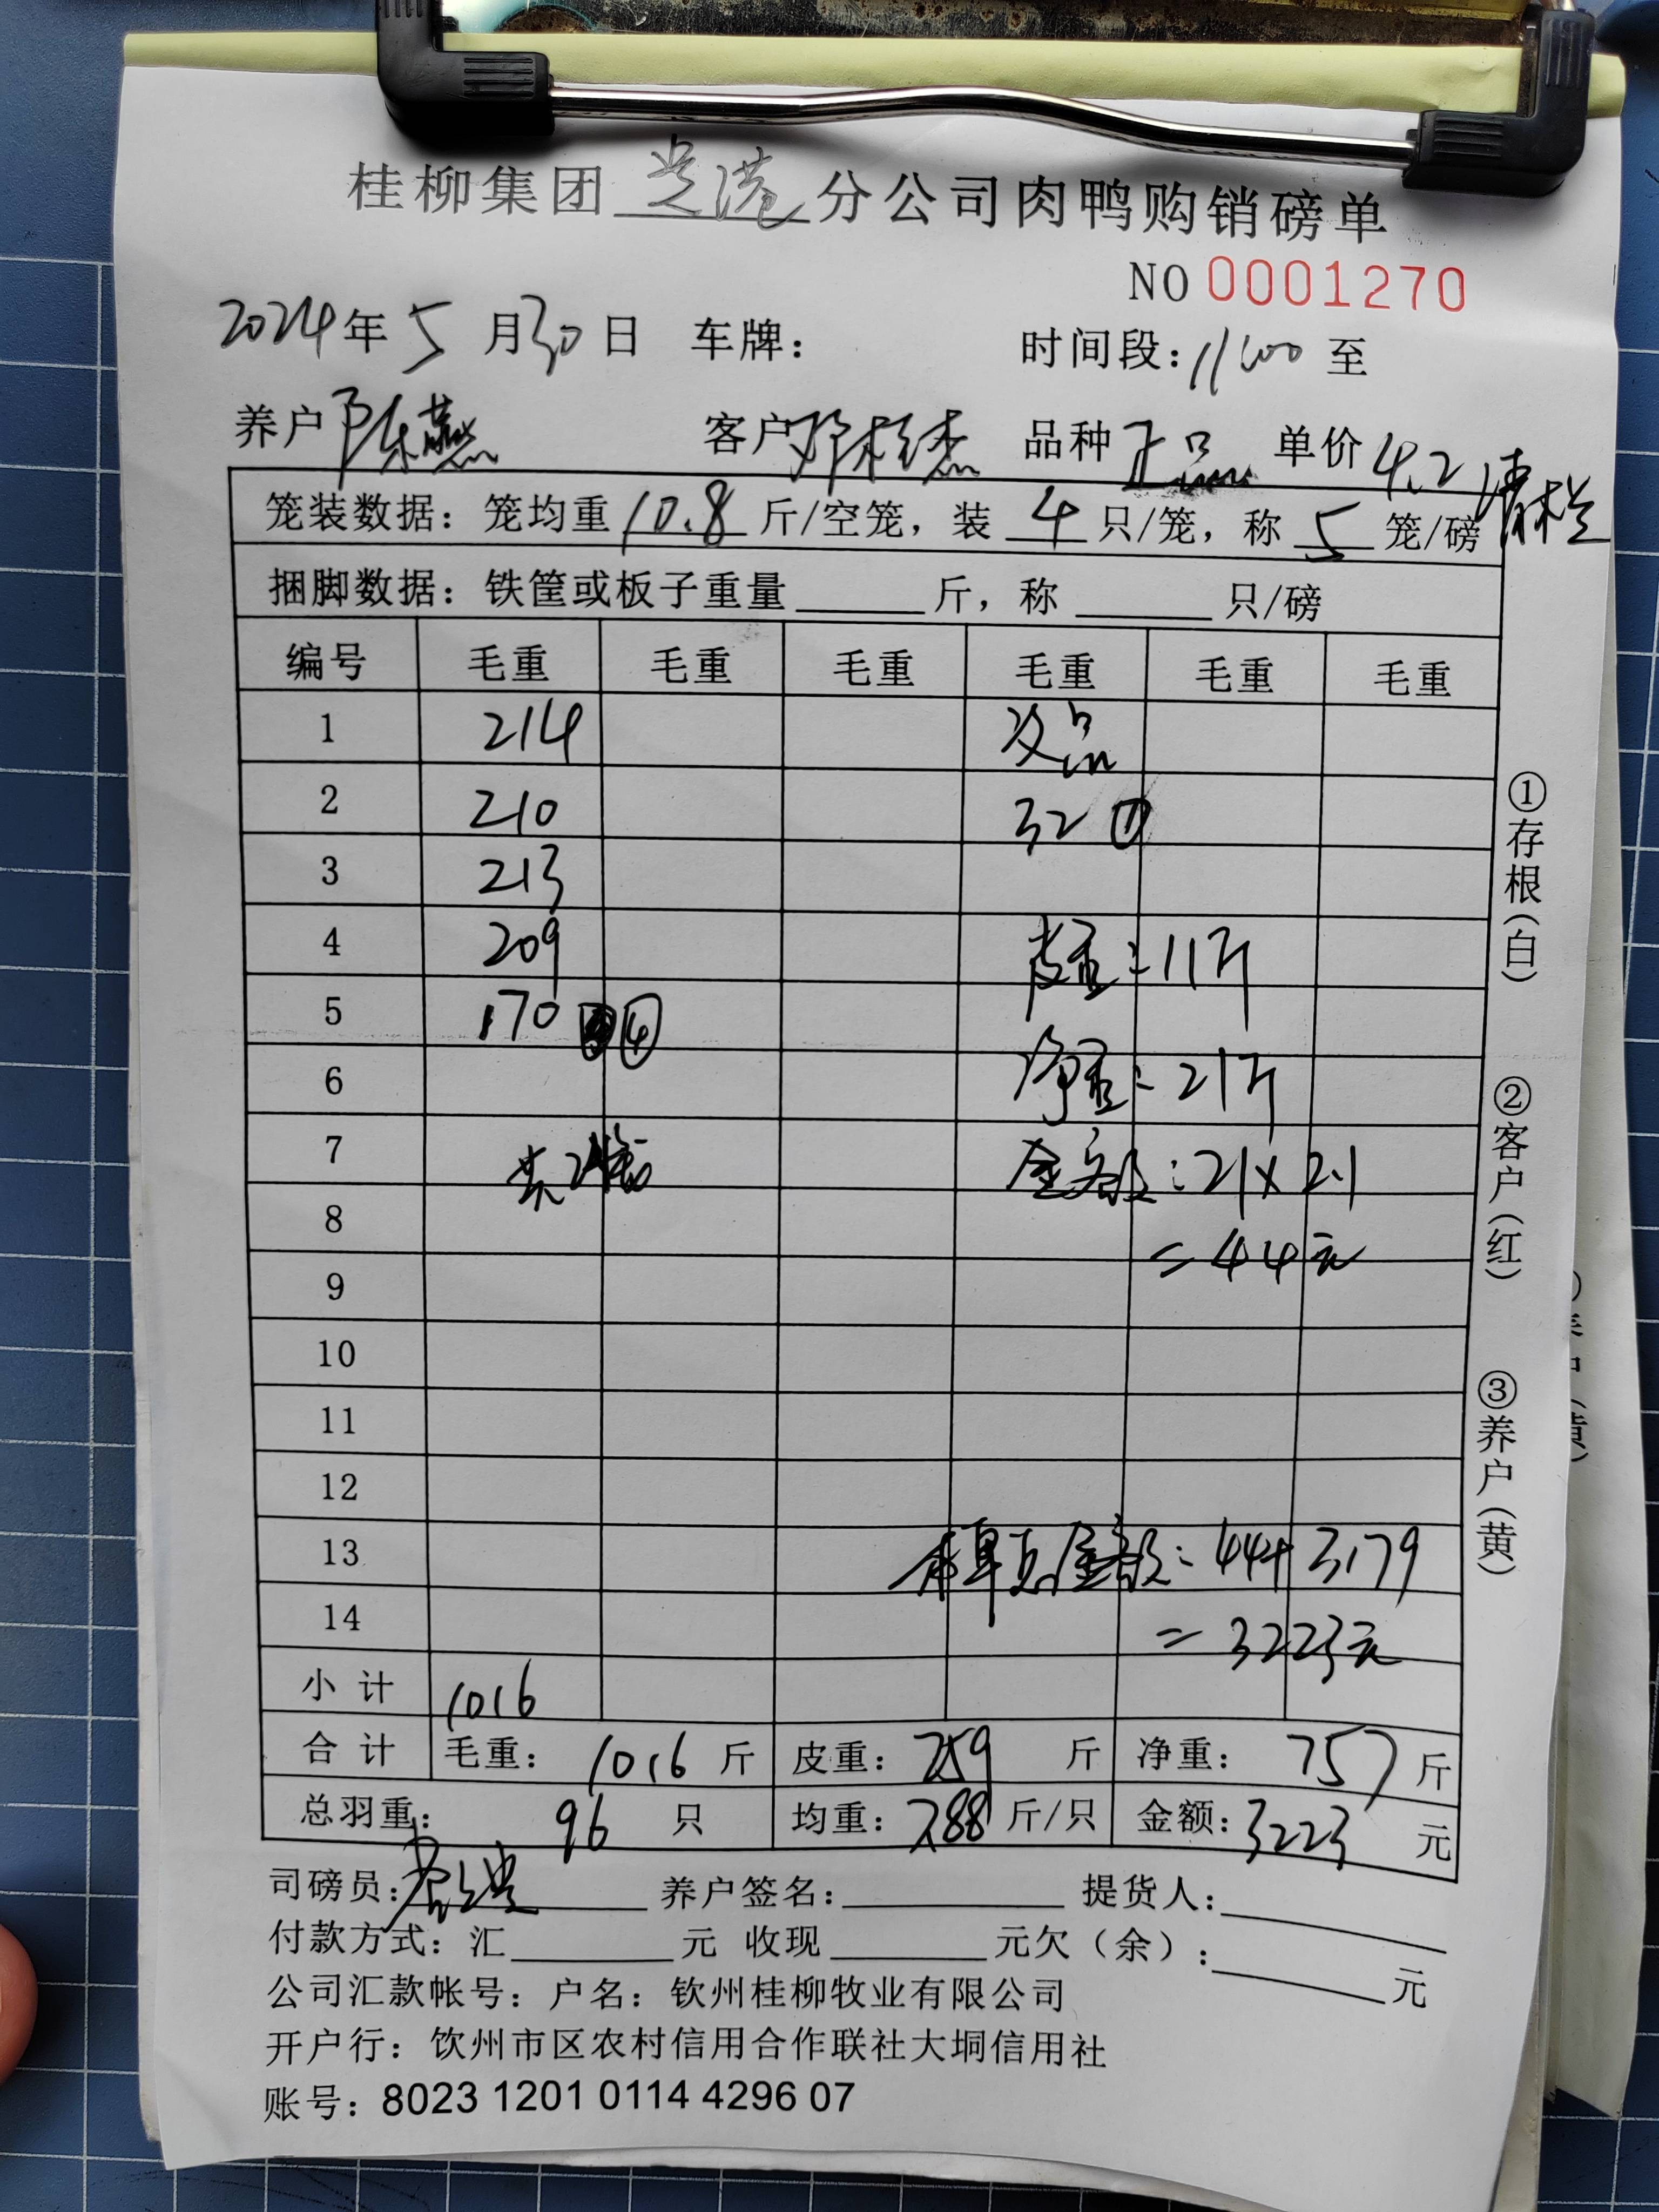 桂柳集团 贵港 分公司肉鸭购销磅单
NO 0001270
2024年 5 月 30 日 车牌： 时间段：11:00 至
养户 陈燕 客户 邓桂杰 品种 正品 单价 4.2 清栏
笼装数据：笼均重 10.8 斤/空笼，装 4 只/笼，称 5 笼/磅
捆脚数据：铁筐或板子重量 斤，称 只/磅
编号 毛重 毛重 毛重 毛重 毛重 毛重
1 214 次品
2 210 32 ①
3 213
4 209 皮重：11斤
5 170 ④
6 净重：21斤
7 共24 金额：21×2.1
8 =44元
9
10
11
12
13 本单总金额：44+3179
14 =3223元
小计 1016
合计 毛重： 1016 斤 皮重： 259 斤 净重： 757 斤
总羽重： 96 只 均重： 7.88 斤/只 金额： 3223 元
司磅员： 养户签名： 提货人：
付款方式：汇 元 收现 元欠（余）： 元
公司汇款帐号：户名：钦州桂柳牧业有限公司
开户行：钦州市区农村信用合作联社大垌信用社
账号：8023 1201 0114 4296 07
①存根（白）
②客户（红）
③养户（黄）